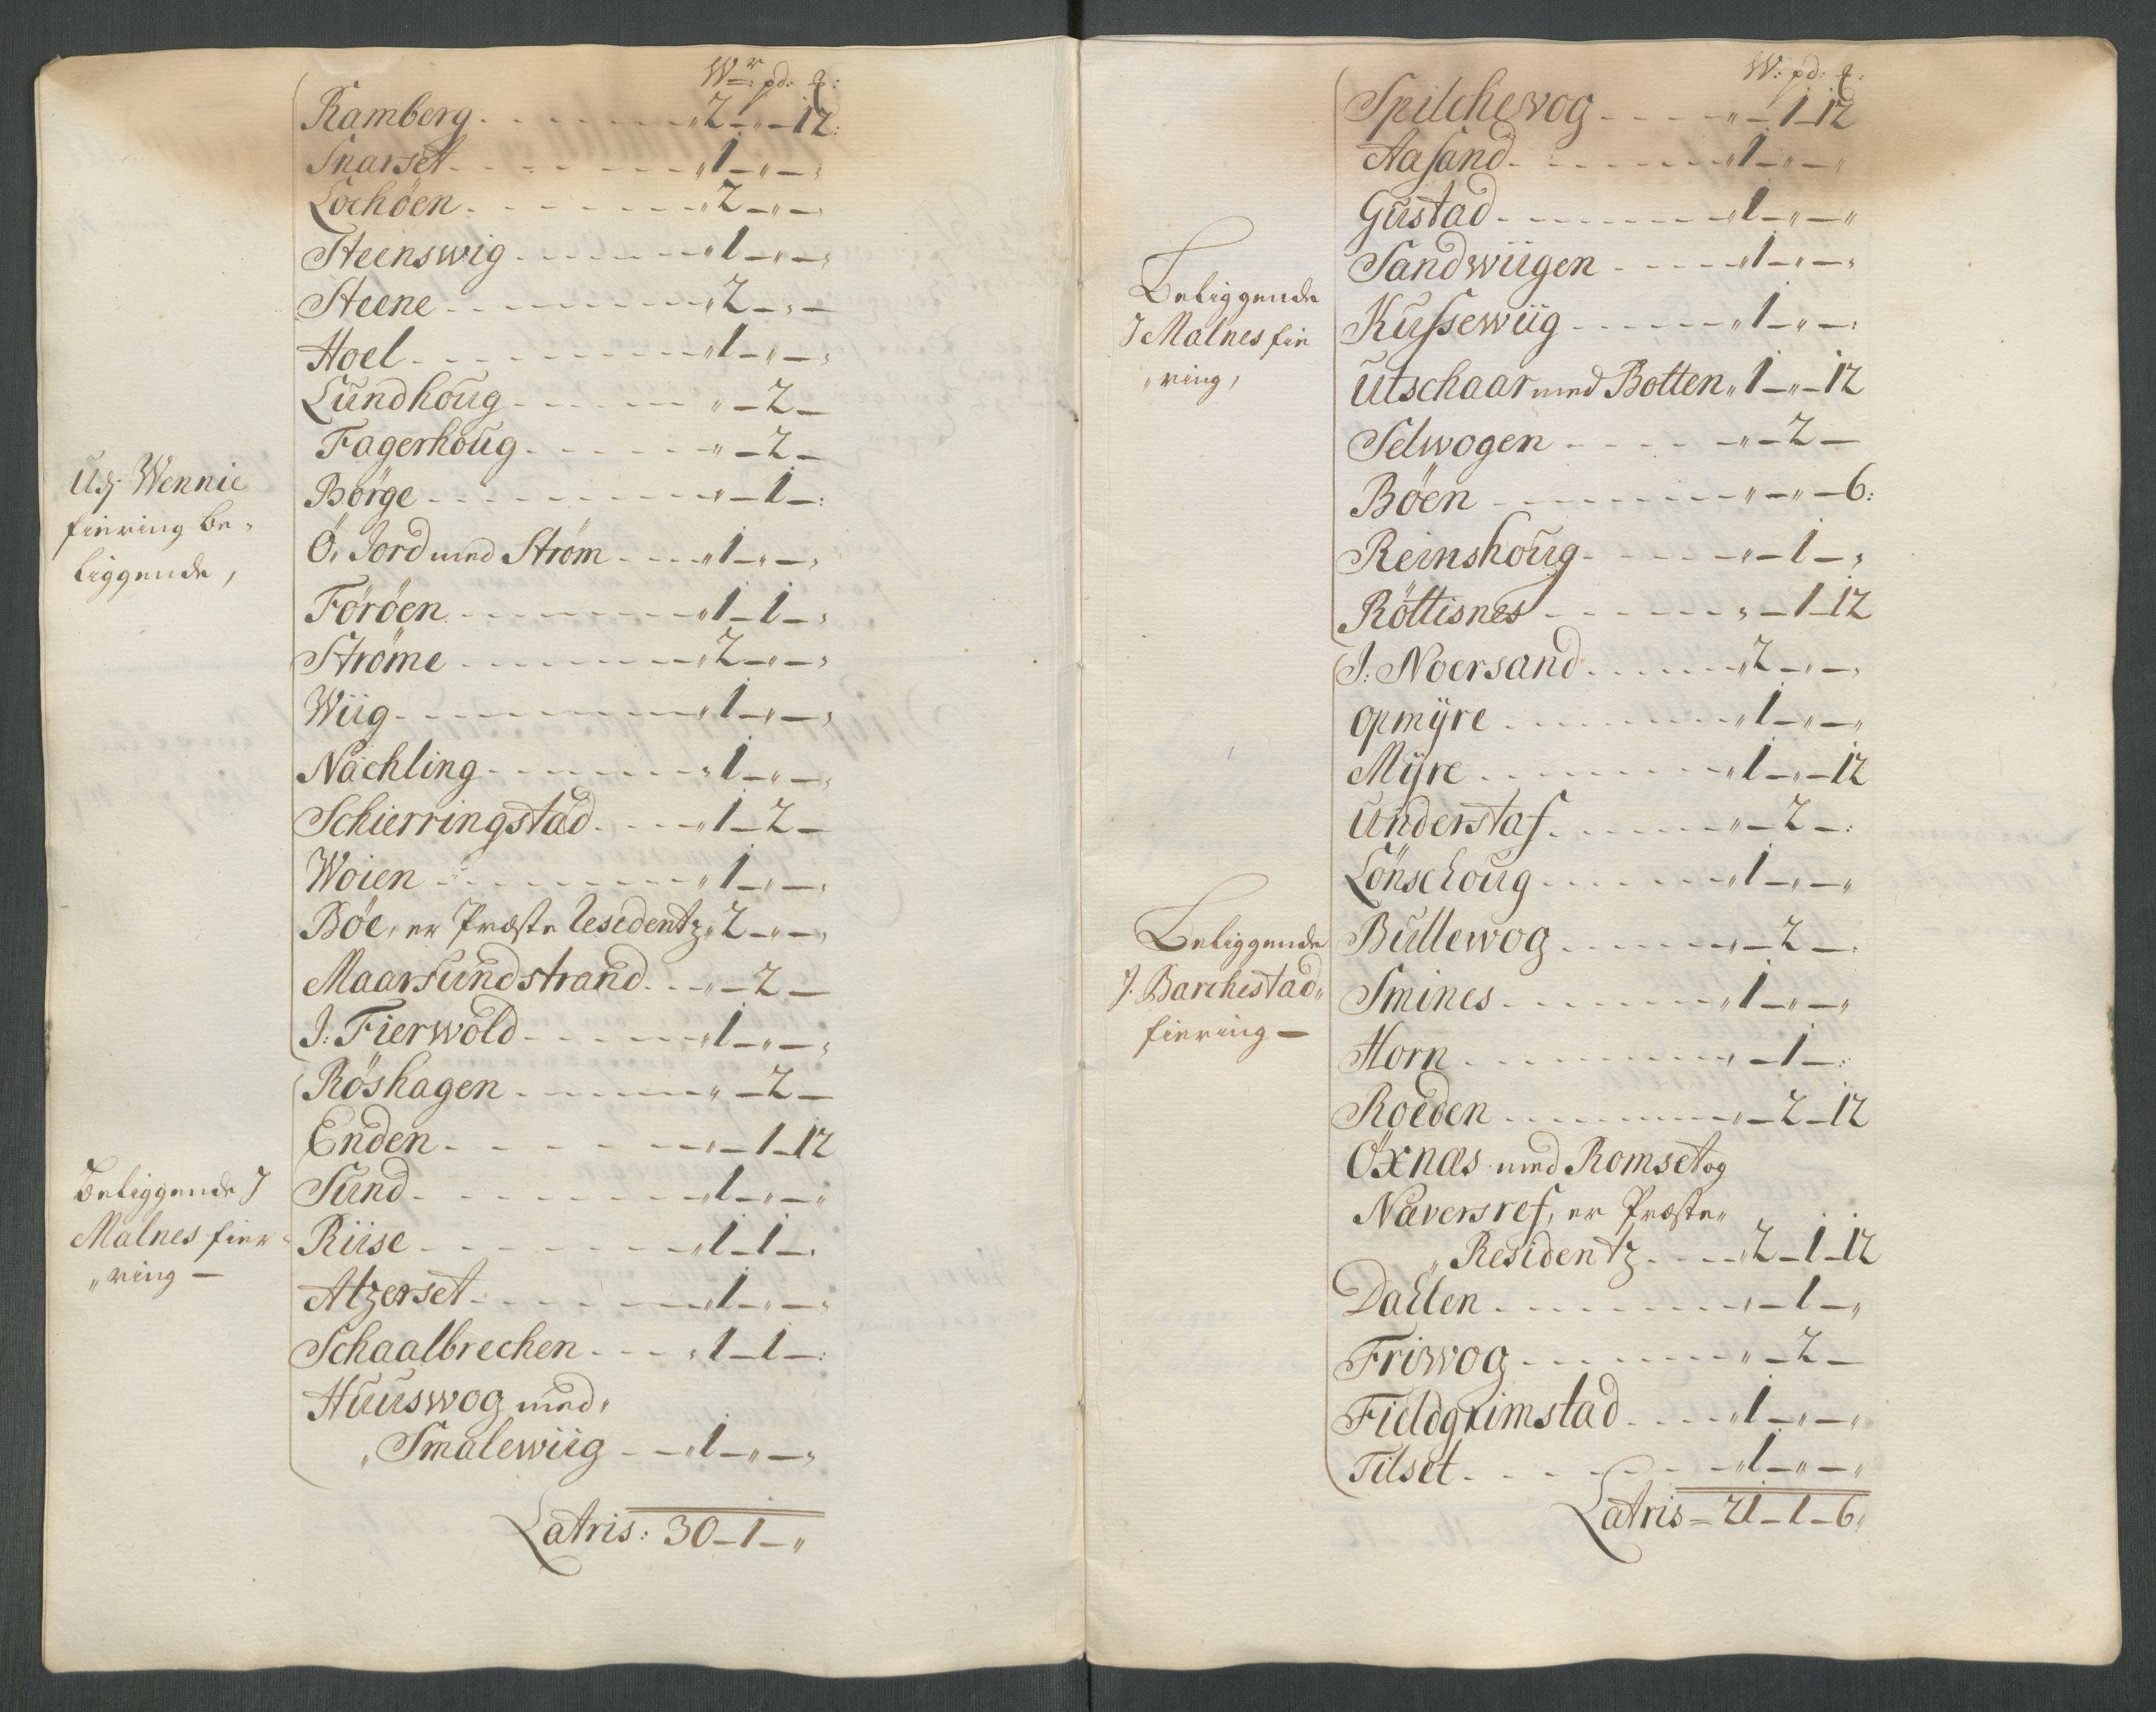 Wr: pd: :
Ramberg . . . . . . . „ 2 — „ — 12:
Snarset . . . . . . . „ 1 — „ — ,
Lochöen . . . . . . . „ 2 — „ — ,
Steenswig . . . . . . „ 1 — „ — ,
Steene . . . . . . . „ 2 — , —
Hoel . . . . . . . . „ 1 — „ — ,
Lundhoug . . . . . . „ — 2 —
Fagerhoug . . . . . . „ — 2 —
Börge . . . . . . . „ — 1 — :
Udj Wennie
fiering be„
liggende,
Ö, Jord med Ström . . . „ 1 — „ — ,
Föröen . . . . . . . „ 1 — 1 — ,
Ströme . . . . . . . „ 2 — „ — ,
Wiig . . . . . . . . „ 1 — „ — ,
Nächling . . . . . . „ 1 — „ — ,
Schierringstad . . . . „ 1 — 2 —
Woien . . . . . . . „ 1 — „ — ,
Böe, er Præste Residentz „ 2 — „ — ,
Maarsundstrand . . . „ — 2 —
J: Fierwold . . . . . „ 1 — „ — ,
Röshagen . . . . . . „ — 2 —
Enden . . . . . . . „ — 1 — 12
Beliggende J
Malnes fier„
„ring —
Sund . . . . . . . . „ 1 — „ — „
Riise . . . . . . . . „ 1 — 1 — .
Atzerset . . . . . . . „ 1 — „ — ,
Schaalbrechen . . . . , 1 — 1 — :
Huuswog med,
„Smalewiig — — „ 1 — „ — ,
Latris: 30 — 1 — „
W: pd: :
Spilchewog . . . . . „ — 1 — 12
Aasand . . . . . . . „ 1 — „ — „
Gustad . . . . . . . „ 1 — „ — „
Sandwiigen . . . . . „ 1 — „ — ,
Beliggende
J Malnes fie
„ring,
Kussewiig . . . . . . „ 1 — „ — :
Utschaar med Botten „ 1 — „ — 12
Selwogen . . . . . . „ — 2 —
Böen . . . . . . . . „ — „ — 6:
Reinshoug . . . . . . „ — 1 — ,
Röttisnes . . . . . . , — 1 — 12
J: Noersand . . . . . „ 2 — „ — ,
Opmÿre . . . . . . . „ 1 — „ — „
Mÿre . . . . . . . . „ 1 — „ — 12
Understaf . . . . . . „ — 2 — :
Lönschoug . . . . . . „ 1 — „ — „
Beliggende
J. Barchestad„
fiering —
Bullewog . . . . . . „ — 2 — :
Smines . . . . . . . „ 1 — „ — „
Horn . . . . . . . . „ — 1 — :
Roeden . . . . . . . „ — 2 — 12
Öxnæs med Romset og
Næversref, er Præste„
„Residentz . . . . „ 2 — 1 — 12
Dallen . . . . . . . „ — 1 — „
Friwog . . . . . . . „ — 2 —
Fieldgrimstad . . . . „ 1 — „ — „
Tilset . . . . . . . . „ 1 — „ — „
Latris = 21 — 1 — 6„